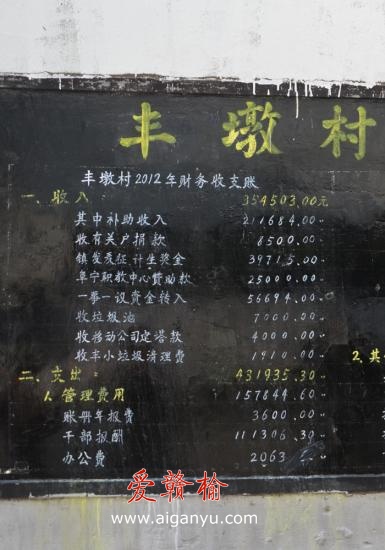 丰墩村
丰墩村2012年财务收支账
一、收入 354503.00元
其中补助收入 211684.00〃
收有关户捐款 8500.00〃
镇发爱征计生奖金 39715.00〃
阜宁职教中心赞助款 25000.00〃
一事一议资金转入 56694.00〃
收垃圾池 7000.00〃
收移动公司定塔款 4000.00〃
收丰小垃圾清理费 1910.00〃
二、支出: 431935.30〃
1、管理费用 157844.60〃
账册年报费 3600.00〃
干部报酬 111306.30〃
办公费 2063
2、其
爱赣榆
www.aiganyu.com